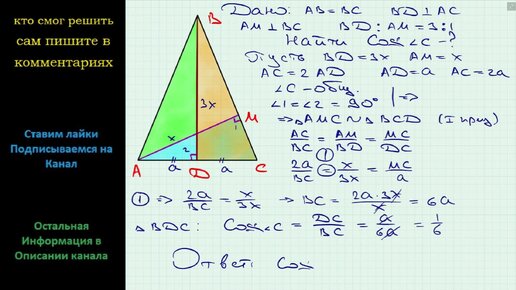 кто смог решить
сам пишите в
комментариях
Ставим лайки
Подписываемся на
Канал
Остальная
Информация в
Описании канала
B
3x
x
M
1
2
A
a
D
a
C
Дано: AB=BC BD⊥AC
AM⊥BC BD:AM=3:1
Найти Cos∠C-?
Пусть BD=3x AM=x
AC=2AD AD=a AC=2a
∠C-общ.
∠1=∠2=90° |⇒
⇒ △AMC∾△BCD (I приз)
AC/BC = AM/BD = MC/DC
①
2a/BC = x/3x = MC/a
① ⇒ 2a/BC = x/3x → BC = 2a·3x/x = 6a
△BDC: Cos∠C = DC/BC = a/6a = 1/6
Ответ: Cos